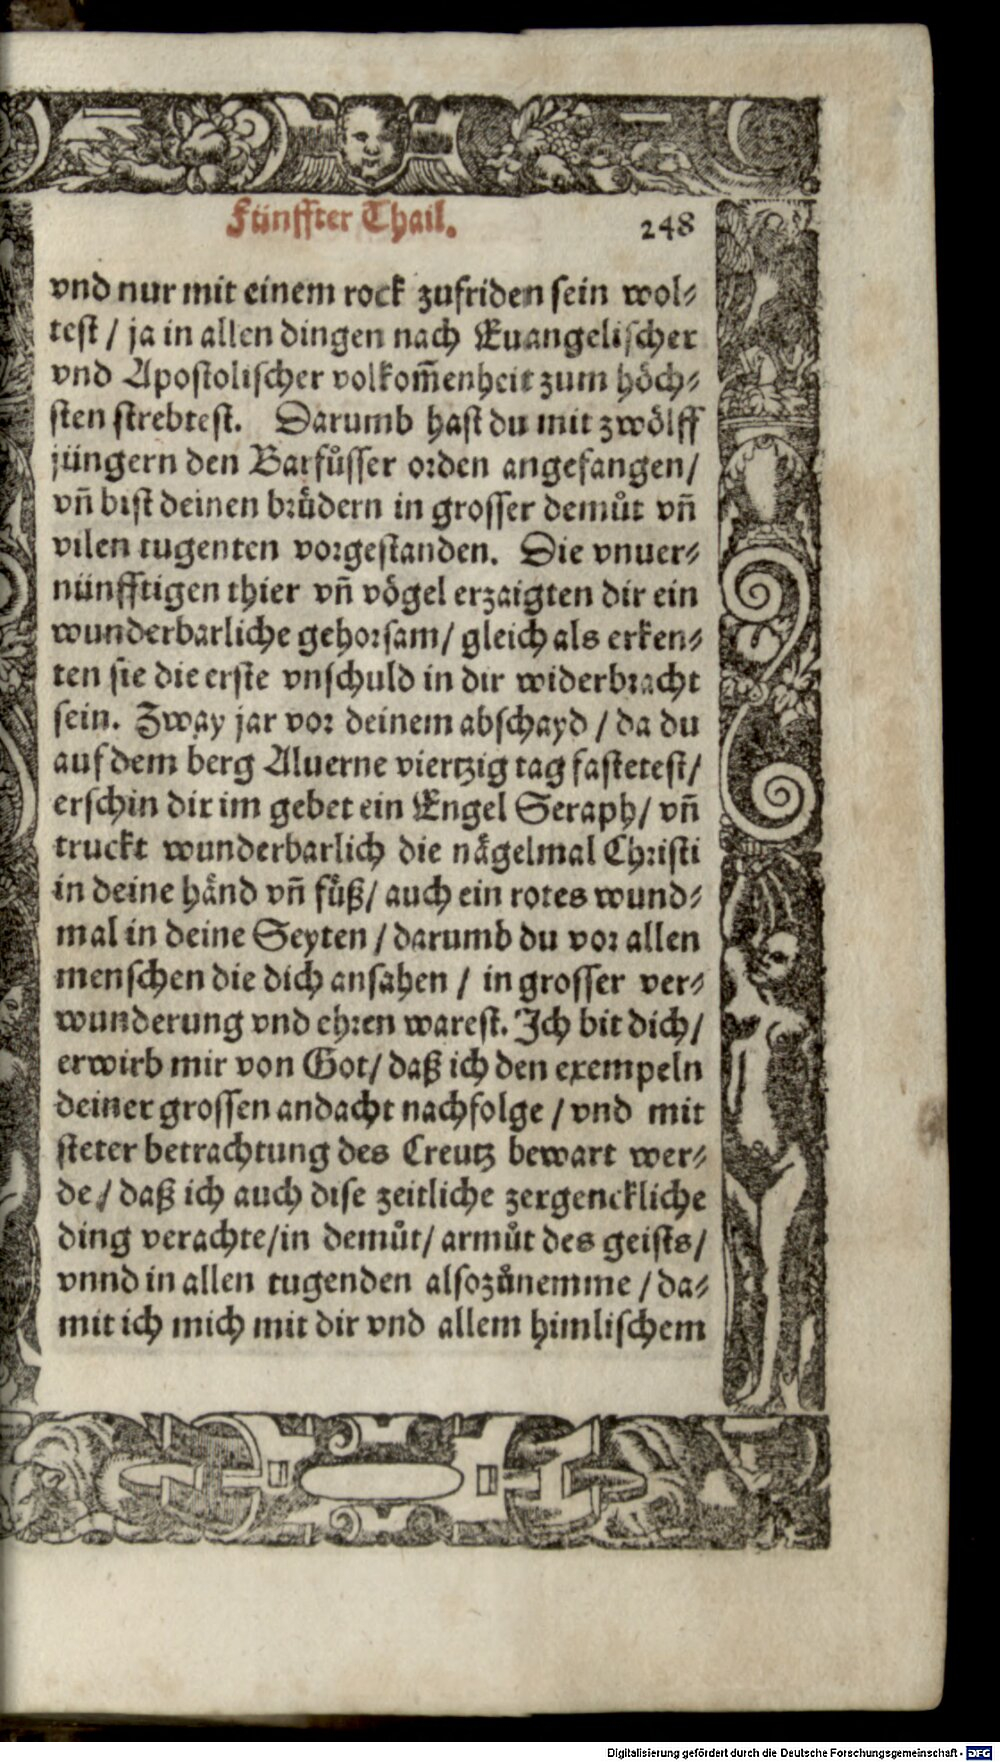 Fünffter Thail. 248
vnd nur mit einem rock zufriden sein wol⸗
test / ja in allen dingen nach Euangelischer
vnd Apostolischer volkom̃enheit zum höch⸗
sten strebtest. Darumb hast du mit zwölff
jüngern den Barfůsser orden angefangen /
vñ bist deinen brüdern in grosser demůt vñ
vilen tugenten vorgestanden. Die vnuer⸗
nünfftigen thier vñ vögel erzaigten dir ein
wunderbarliche gehorsam / gleich als erken⸗
ten sie die erste vnschuld in dir widerbracht
sein. Zway jar vor deinem abschayd / da du
auf dem berg Aluerne viertzig tag fastetest /
erschin dir im gebet ein Engel Seraph / vñ
truckt wunderbarlich die nägelmal Christi
in deine händ vñ füß / auch ein rotes wund⸗
mal in deine Seyten / darumb du vor allen
menschen die dich ansahen / in grosser ver⸗
wunderung vnd ehren warest. Ich bit dich /
erwirb mir von Got / daß ich den exempeln
deiner grossen andacht nachfolge / vnd mit
steter betrachtung des Creutz bewart wer⸗
de / daß ich auch dise zeitliche zergenckliche
ding verachte / in demůt / armůt des geists /
vnnd in allen tugenden also zůnemme / da⸗
mit ich mich mit dir vnd allem himlischem
Digitalisierung gefördert durch die Deutsche Forschungsgemeinschaft - DFG